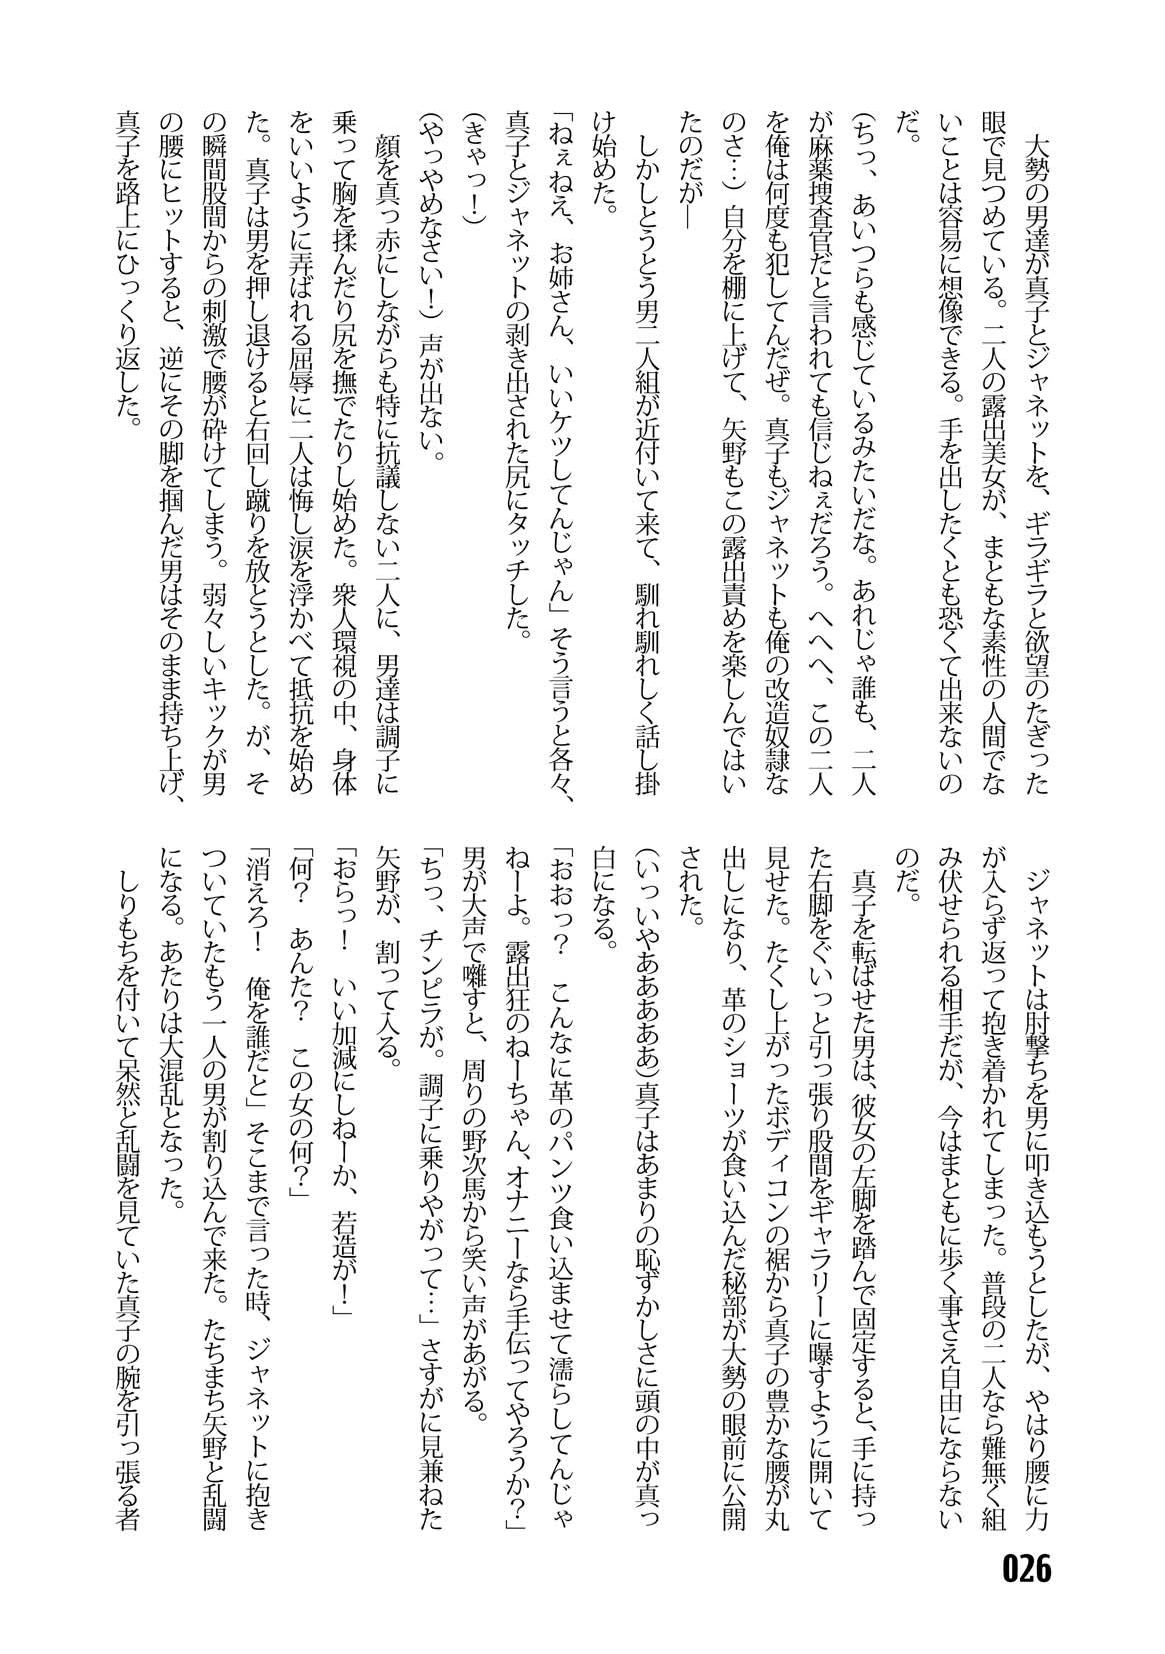 大勢の男達が真子とジャネットを、ギラギラと欲望のたぎった
眼で見つめている。二人の露出美女が、まともな素性の人間でな
いことは容易に想像できる。手を出したくとも恐くて出来ないの
だ。
(ちっ、あいつらも感じているみたいだな。あれじゃ誰も、二人
が麻薬捜査官だと言われても信じねぇだろう。へへへ、この二人
を俺は何度も犯してんだぜ。真子もジャネットも俺の改造奴隷な
のさ…) 自分を棚に上げて、矢野もこの露出責めを楽しんではい
たのだが―
しかしとうとう男二人組が近付いて来て、馴れ馴れしく話し掛
け始めた。
「ねぇねえ、お姉さん、いいケツしてんじゃん」そう言うと各々、
真子とジャネットの剥き出された尻にタッチした。
(きゃっ!)
(やっやめなさい!) 声が出ない。
顔を真っ赤にしながらも特に抗議しない二人に、男達は調子に
乗って胸を揉んだり尻を撫でたりし始めた。衆人環視の中、身体
をいいように弄ばれる屈辱に二人は悔し涙を浮かべて抵抗を始め
た。真子は男を押し退けると右回し蹴りを放とうとした。が、そ
の瞬間股間からの刺激で腰が砕けてしまう。弱々しいキックが男
の腰にヒットすると、逆にその脚を掴んだ男はそのまま持ち上げ、
真子を路上にひっくり返した。
ジャネットは肘撃ちを男に叩き込もうとしたが、やはり腰に力
が入らず返って抱き着かれてしまった。普段の二人なら難無く組
み伏せられる相手だが、今はまともに歩く事さえ自由にならない
のだ。
真子を転ばせた男は、彼女の左脚を踏んで固定すると、手に持っ
た右脚をぐいっと引っ張り股間をギャラリーに曝すように開いて
見せた。たくし上がったボディコンの裾から真子の豊かな腰が丸
出しになり、革のショーツが食い込んだ秘部が大勢の眼前に公開
された。
(いっいやああああぁ)真子はあまりの恥ずかしさに頭の中が真っ
白になる。
「おおっ? こんなに革のパンツ食い込ませて濡らしてんじゃ
ねーよ。露出狂のねーちゃん、オナニーなら手伝ってやろうか?」
男が大声で囃すと、周りの野次馬から笑い声があがる。
「ちっ、チンピラが。調子に乗りやがって…」さすがに見兼ねた
矢野が、割って入る。
「おらっ! いい加減にしねーか、若造が!」
「何? あんた? この女の何?」
「消えろ! 俺を誰だと」そこまで言った時、ジャネットに抱き
ついていたもう一人の男が割り込んで来た。たちまち矢野と乱闘
になる。あたりは大混乱となった。
しりもちを付いて呆然と乱闘を見ていた真子の腕を引っ張る者
026